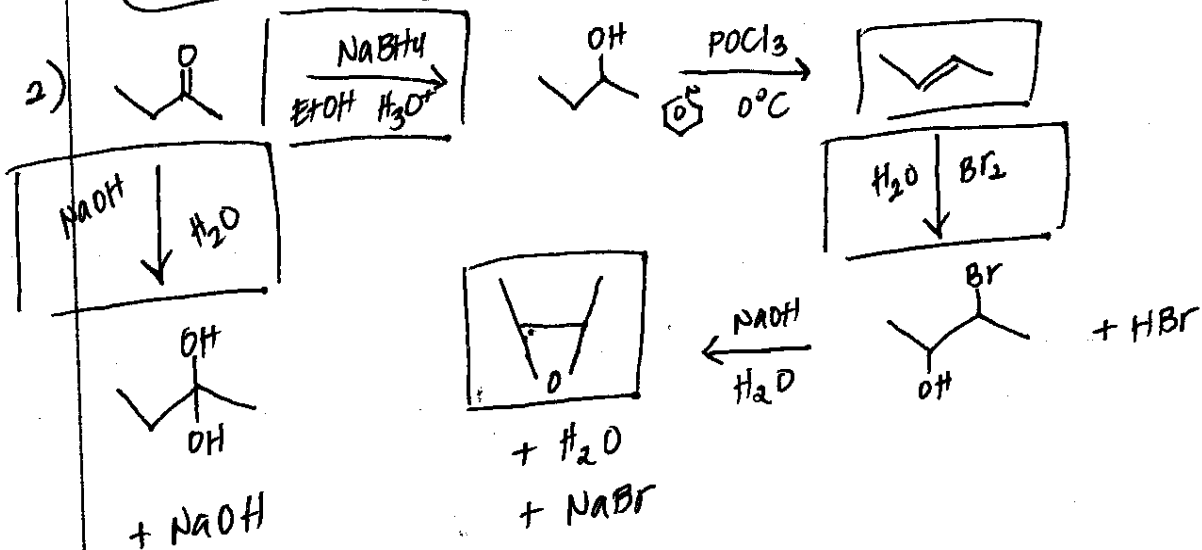 2)
O
NaBH4
EtOH H3O+
OH
POCl3
N
0°C
NaOH
H2O
H2O Br2
OH
OH
+ NaOH
O
+ H2O
+ NaBr
NaOH
H2O
Br
OH
+ HBr